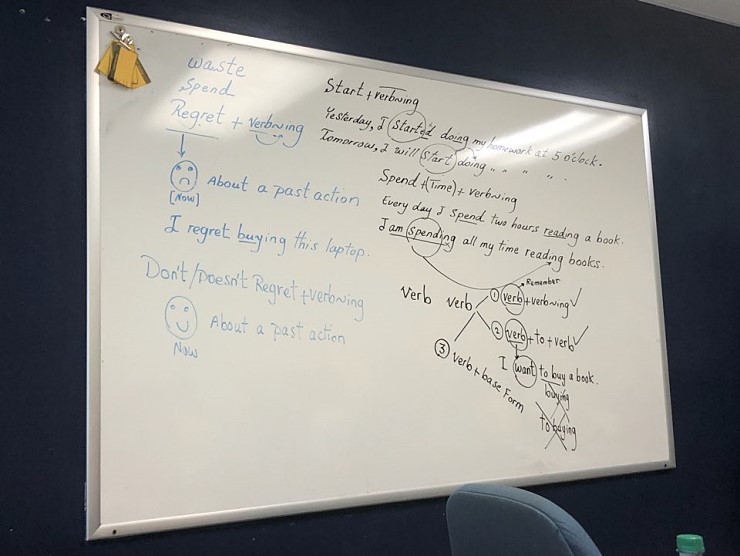 waste
Spend
Regret + verb~ing
[Now]
About a past action
I regret buying this laptop.
Don't/Doesn't Regret + verb~ing
About a past action
Now
Start + verb~ing
Yesterday, I started doing my homework at 5 o'clock.
Tomorrow, I will start doing " " " " .
Spend + (Time) + verb~ing
Every day I spend two hours reading a book.
I am spending all my time reading books.
Remember
verb verb
① verb + verb~ing ✓
② verb + to + verb ✓
I want to buy a book.
buying
to buying
③ verb + base Form